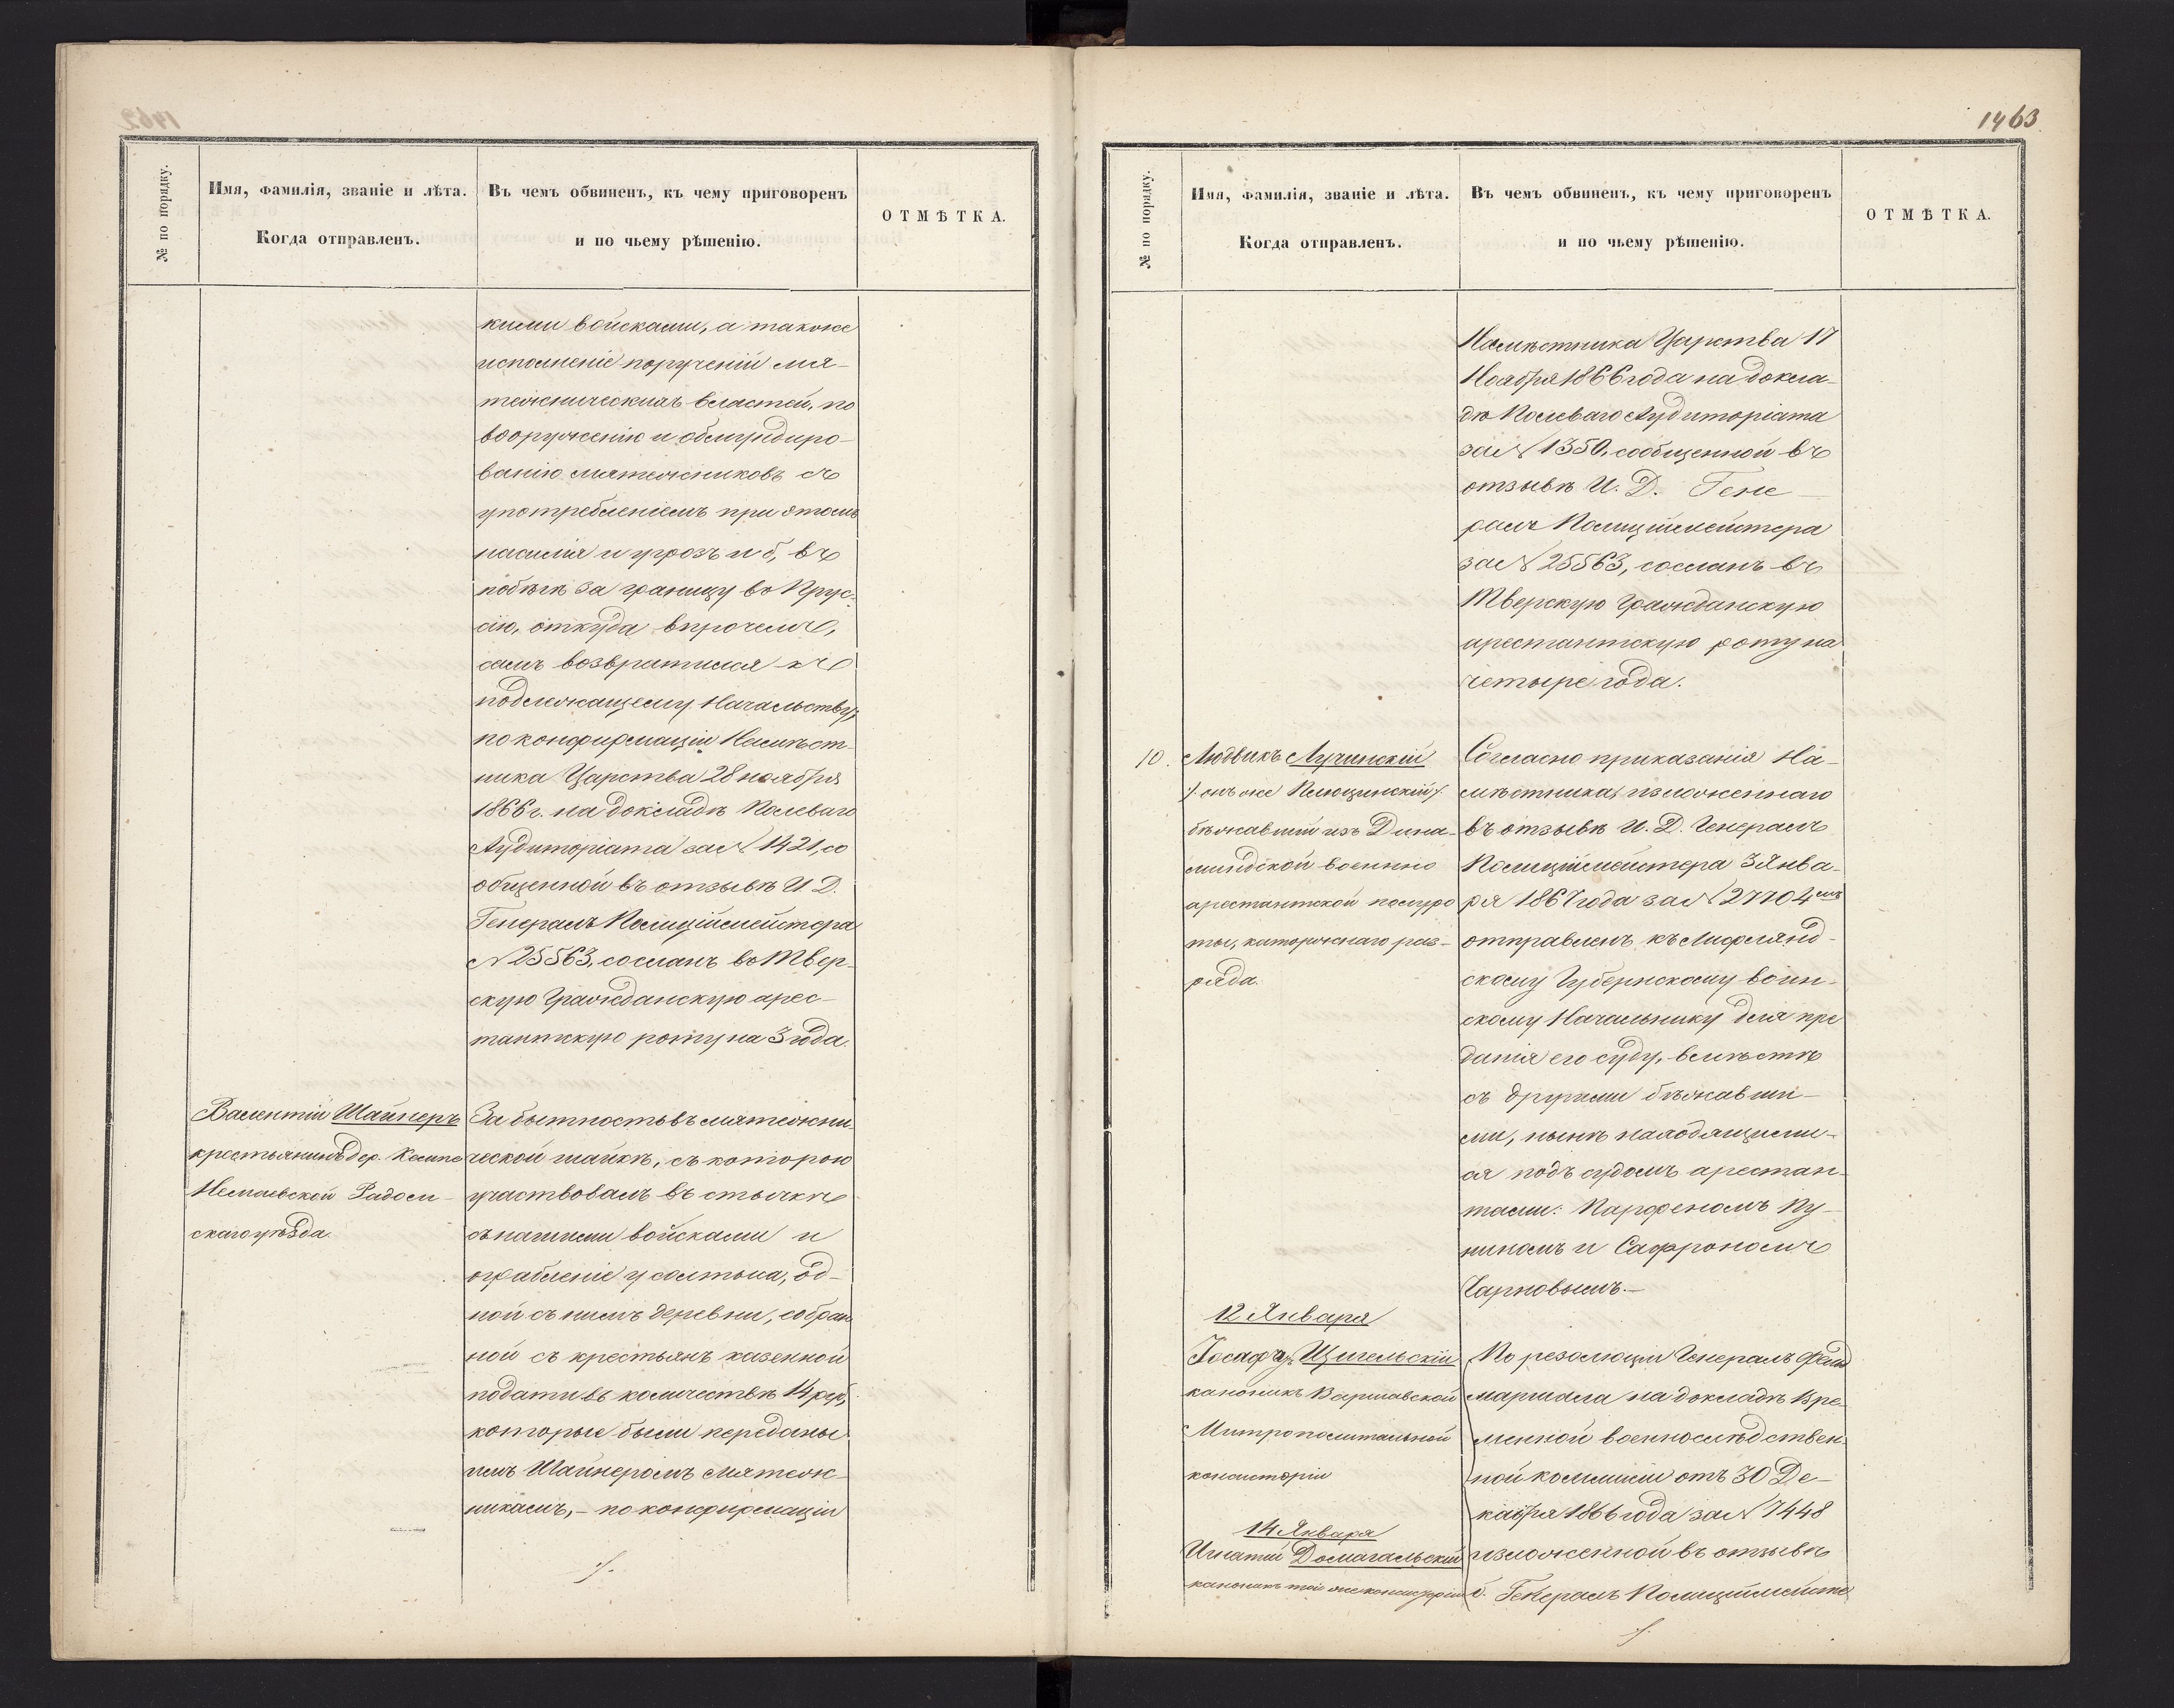 1463
№ по порядку.
Имя, фамилія, званіе и лѣта.
Когда отправленъ.
Въ чемъ обвиненъ, къ чему приговоренъ
и по чьему рѣшенію.
ОТМѢТКА.
кими войсками, а также
исполненіе порученій мя-
тежническихъ властей, по
вооруженію и обмундиро-
ванію мятежниковъ съ
употребленіемъ при этомъ
насилія и угрозъ и б, въ
побѣгѣ за границу въ Прус-
сію, откуда впрочемъ,
самъ возвратился къ
подлежащему Начальству,
по конфирмаціи Намѣст-
ника Царства 28 ноября
1866 г. на докладѣ Полеваго
Аудиторіата за № 1421, со
общенной въ отзывѣ И Д.
Генералъ Полиціймейстера
№ 25563, сосланъ въ Твер-
скую Гражданскую арес-
тантскую роту на 3 года.
Валентій Шайнеръ
крестьянинъ дер.
Радом-
скаго уѣзда.
За бытность въ мятежни-
ческой шайкѣ, съ которою
участвовалъ въ стычкѣ
съ нашими войсками и
ограбленіе у солтыса, од-
ной съ нимъ деревни, собран
ной съ крестьянъ казенной
подати въ количествѣ 14 руб,
которые были переданы
имъ Шайнеромъ мятеж-
никамъ, - по конфирмаціи
№ по порядку.
Имя, фамилія, званіе и лѣта.
Когда отправленъ.
Въ чемъ обвиненъ, къ чему приговоренъ
и по чьему рѣшенію.
ОТМѢТКА.
Намѣстника Царства 17
Ноября 1866 года на докла-
дѣ Полеваго Аудиторіата
за № 1350, сообщенной въ
отзывѣ И. Д. Гене-
ралъ Полиціймейстера
за № 25563, сосланъ въ
Тверскую Гражданскую
арестантскую роту на
четыре года.
10. Людвикъ Лучинскій
онъ же
бѣжавшій изъ Дина-
миндской военно
арестантской полуро
ты, каторжнаго раз-
ряда.
Согласно приказанія На-
мѣстника, изложеннаго
въ отзывѣ И. Д. Генералъ
Полиціймейстера 3 Янва-
ря 1867 года за № 27704
отправленъ къ Лифлянд-
скому Губернскому воин-
скому Начальнику для пре
данія его суду, вмѣстѣ
съ другими бѣжавши-
ми, нынѣ находящими-
ся подъ судомъ арестан-
тами: Парфеномъ Пу-
нинымъ и Сафрономъ
Чарновымъ.-
12 Января
Іосафъ Щигельскій
каноникъ Варшавской
Митрополитальной
консисторіи
14 Января
Игнатій Домагальскій
каноникъ той же консисторіи
По резолюціи Генералъ Фельд
маршала на докладѣ Вре-
менной военнослѣдствен-
ной коммисіи отъ 30 Де-
кабря 1866 года за № 7448
изложенной въ отзывѣ
б. Генералъ Полиціймейсте